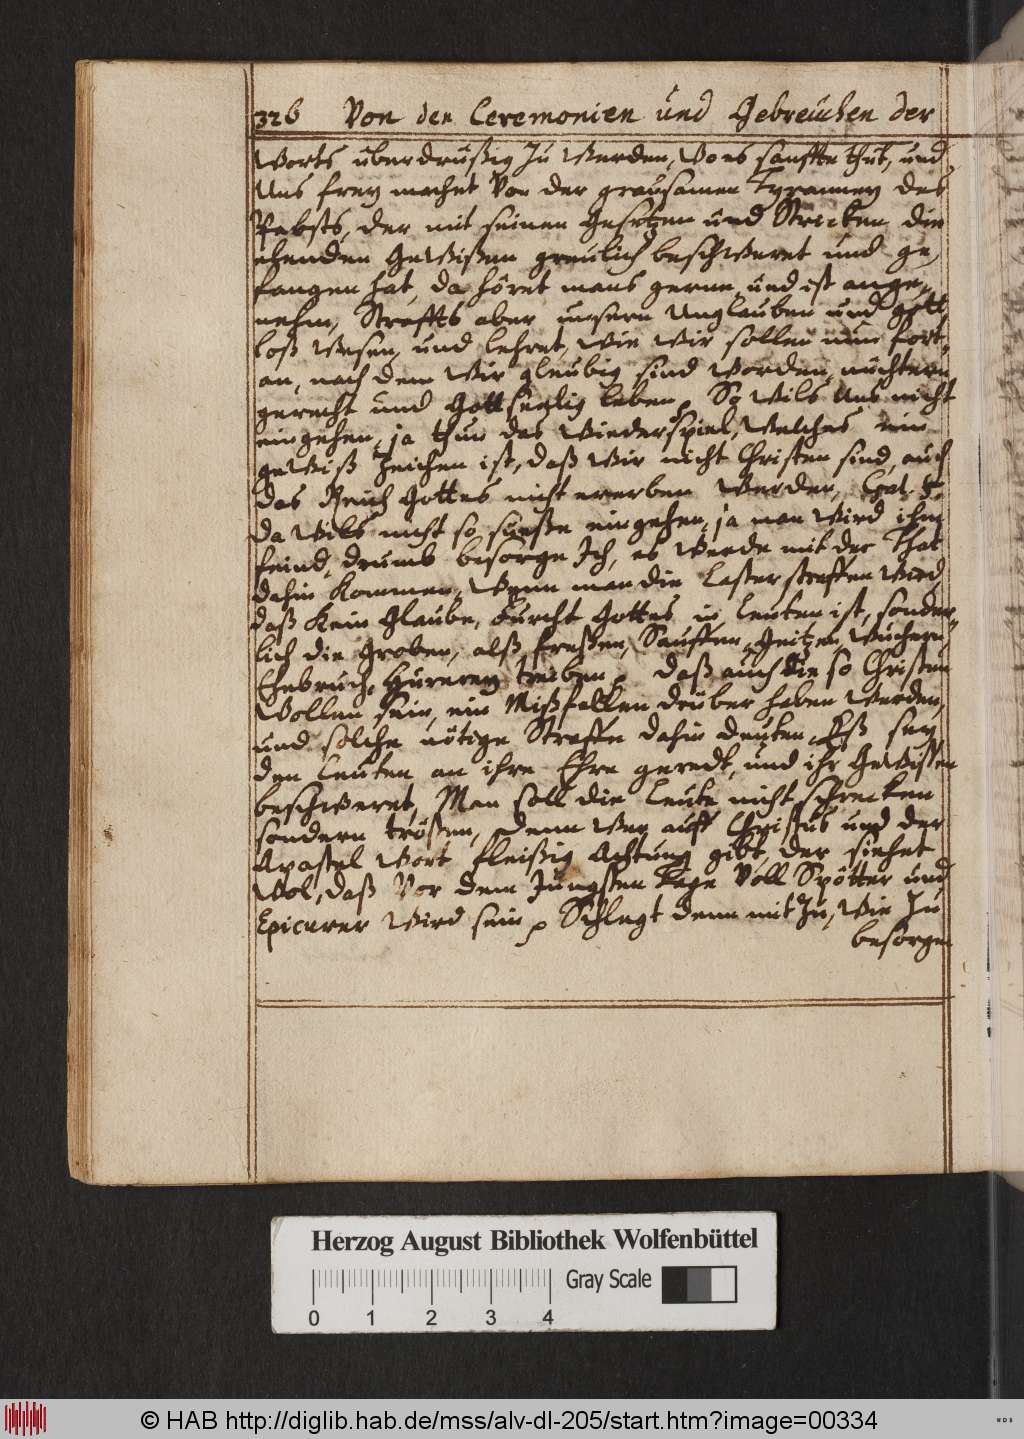 326 Von den Ceremonien und Gebreuchen der
Worts überdrüßig zu werden, Wo es sanffte thut, und
Uns frey machet Von der grausamen Tyranney des
Pabsts, der mit seinen Gesetzen und Stricken die
elenden Gewißen greulich beschweret und ge,
fangen hat, da höret mans gerne, und ist ange,
nehm, Straffts aber unsern Unglauben und gott,
loß Wesen, und lehret, wie wir sollen nun fort,
an, nach dem Wir gleubig sind worden, nüchtern
gerecht und Gottseelig leben, So wils Uns nicht
eingehen, ja thun das Wiederspiel, welches ein
gewiß Zeichen ist, daß wir nicht Christen sind, auch
das Reich Gottes nicht ererben werden, Gal. 5.
Da wils nicht so süeße eingehen, ja man wird ihm
feind, drumb besorge Ich, es werde mit der That
dahin kommen, Wenn man die Laster straffen wird,
daß kein Glaube, Furcht Gottes in Leuten ist, sonder,
lich die groben, alß freßen, Sauffen, Geitzen, Wuchern
Ehebruch, Hurerey treiben, daß auch die so Christen
Wollen sein, ein Mißfallen drüber haben werden,
und solche nötige Straffe dahin deuten, Eß sey
den Leuten an ihre Ehre geredt, und ihr Gewissen
beschweret, Man soll die Leute nicht schrecken
sondern trösten, Denn wer auff Christus und der
Apostel Wort fleißig Achtung gibt, der siehet
Wol, daß Vor dem Jüngsten Tage Voll Spötter und
Epicurer Wird sein, Schlegt denn mit zu, Wie zu
besorgen
Herzog August Bibliothek Wolfenbüttel
Gray Scale
0 1 2 3 4
© HAB http://diglib.hab.de/mss/alv-dl-205/start.htm?image=00334